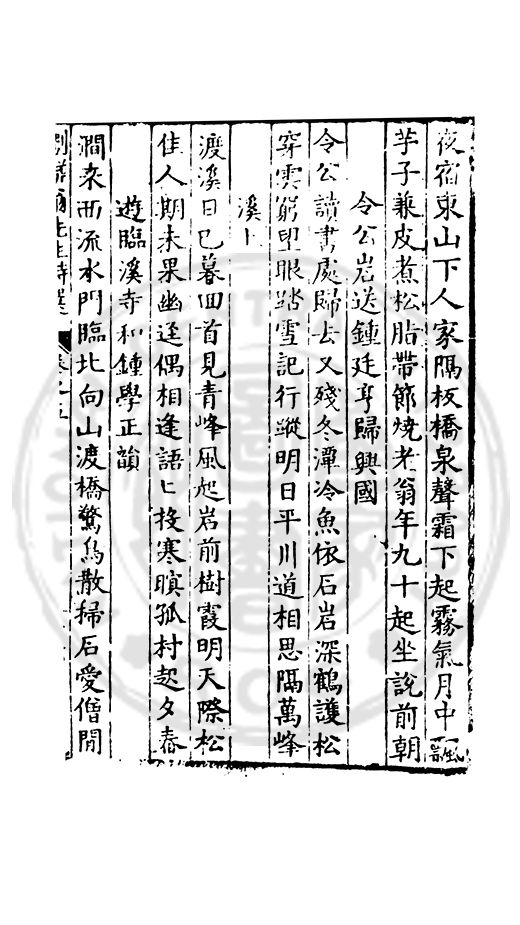 夜宿東山下人家隔板橋泉聲霜下起霧氣月中飄
芋子兼皮煮松脂帶節燒老翁年九十起坐說前朝
令公岩送鍾廷亨歸興國
令公讀書處歸去又殘冬潭冷魚依石岩深鶴護松
穿雲窮望眼踏雪記行蹤明日平川道相思隔萬峰
溪上
渡溪日已暮回首見青峰風起岩前樹霞明天際松
佳人期未果幽逕偶相逢語匕投寒暝孤村起夕舂
遊臨溪寺和鍾學正韻
澗來西流水門臨北向山渡橋驚鳥散掃石愛僧閒
先生詩選 卷之五